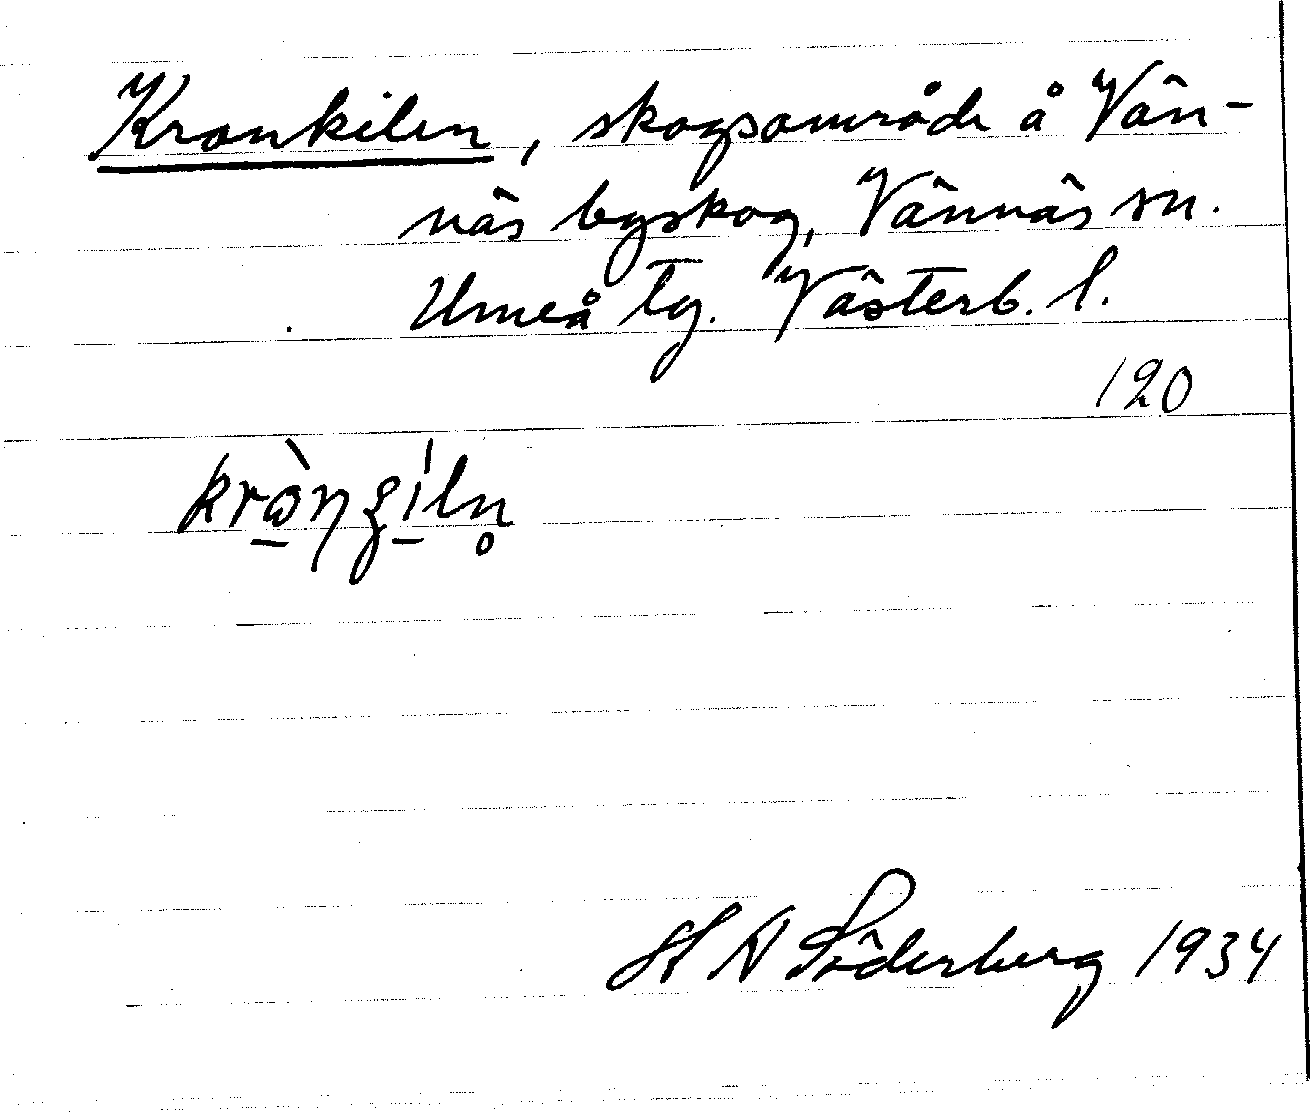 Kronkilen, skogsområde å Vän-
näs byskog, Vännäs sn.
Umeå tg. Västerb. l.
120
H A Söderberg 1934